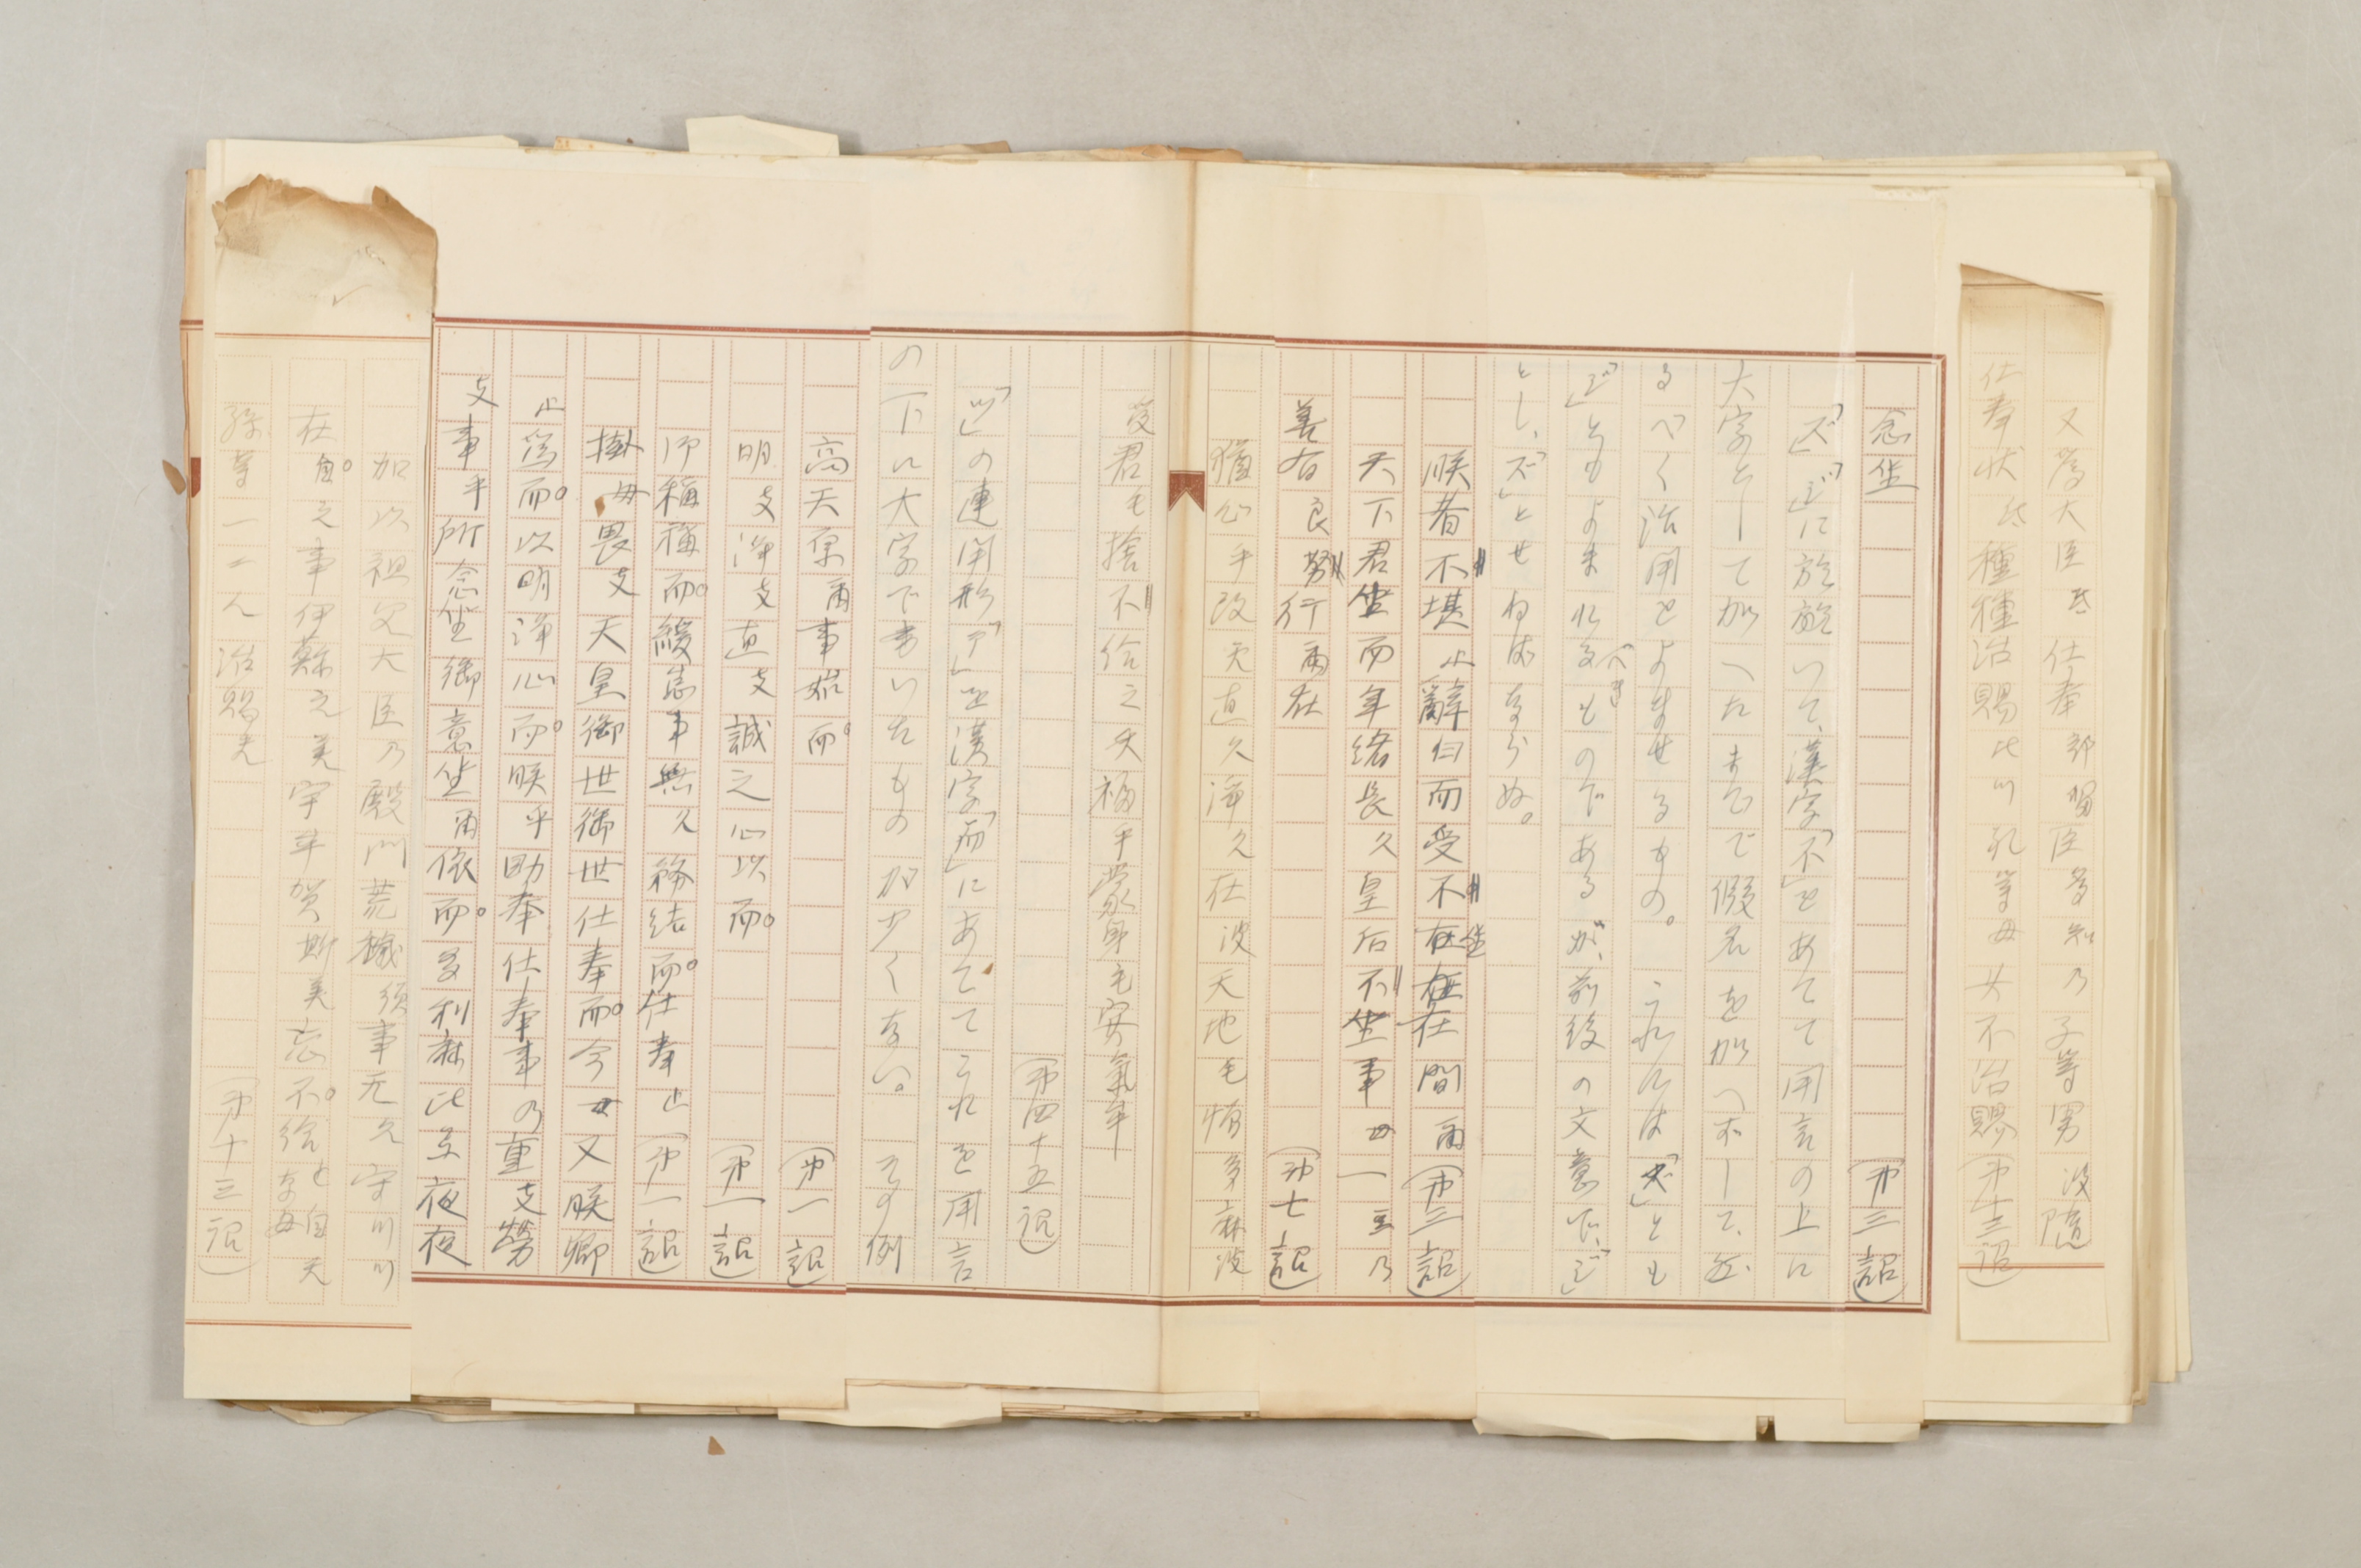 又爲大臣氐仕奉部留臣多知乃子等男波隨
仕奉状氐種種治賜比川礼等母女不治賜(㐧十三詔)
念坐(㐧三詔)
「ズ」「ジ」に於いて、漢字「不」をあてて用言の上に
大字として加へたまでで假名を加へずして、然
るべく活用をよませるもの。これには「ズ」とも
「ジ」ともよまれるべきものであるが、前後の文意で、「ジ」
とし、「ズ」とせねばならぬ。
朕者不堪止辭白而受不坐在間爾(㐧三詔)
天下君坐而年緒長久皇后不坐事母一豆乃
善有良努行爾在(㐧七詔)
猶心乎改天直久淨久在波天地毛憎多麻波
君毛捨不給之天福乎蒙身毛安氣牟
(㐧四十五詔)
「ツ」の連用形「テ」を漢字「而」にあててこれを用言
の下に大字で書いたものが少くない。その例
高天原爾事始而
(㐧一詔)
明支淨支直支誠之心以而
(㐧一詔)
御稱稱而緩怠事無久務結而仕奉止(㐧一詔)
掛母畏支天皇御世御世仕奉而今母又朕卿
止爲而以明淨心而朕乎助奉仕奉事乃重支勞
支事乎所念坐御意坐爾依而多利麻比弖夜夜
加以祖父大臣乃殿門荒穢須事无久守川川
在自之事伊蘇之美宇牟賀斯美忘不給と自天
孫等一二人治賜夫
(㐧十三詔)